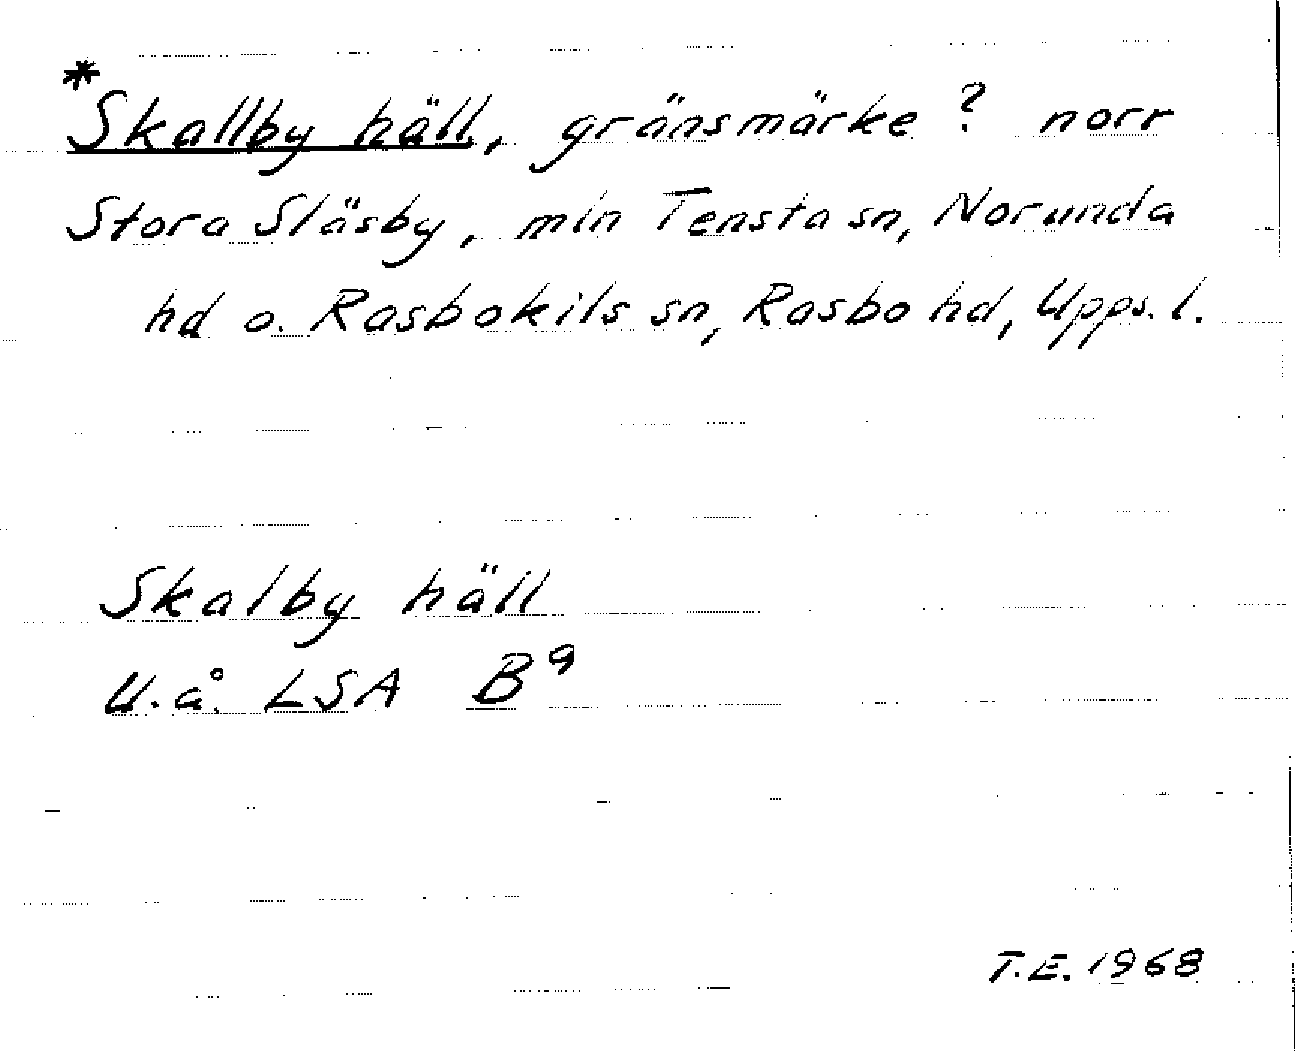 *Skallby häll, gränsmärke? norr
Stora Släsby, mln Tensta sn, Norunda
hd o. Rasbokils sn, Rasbo hd, Upps. l.
Skalby häll
U.å. LSA B⁹
T.E. 1968